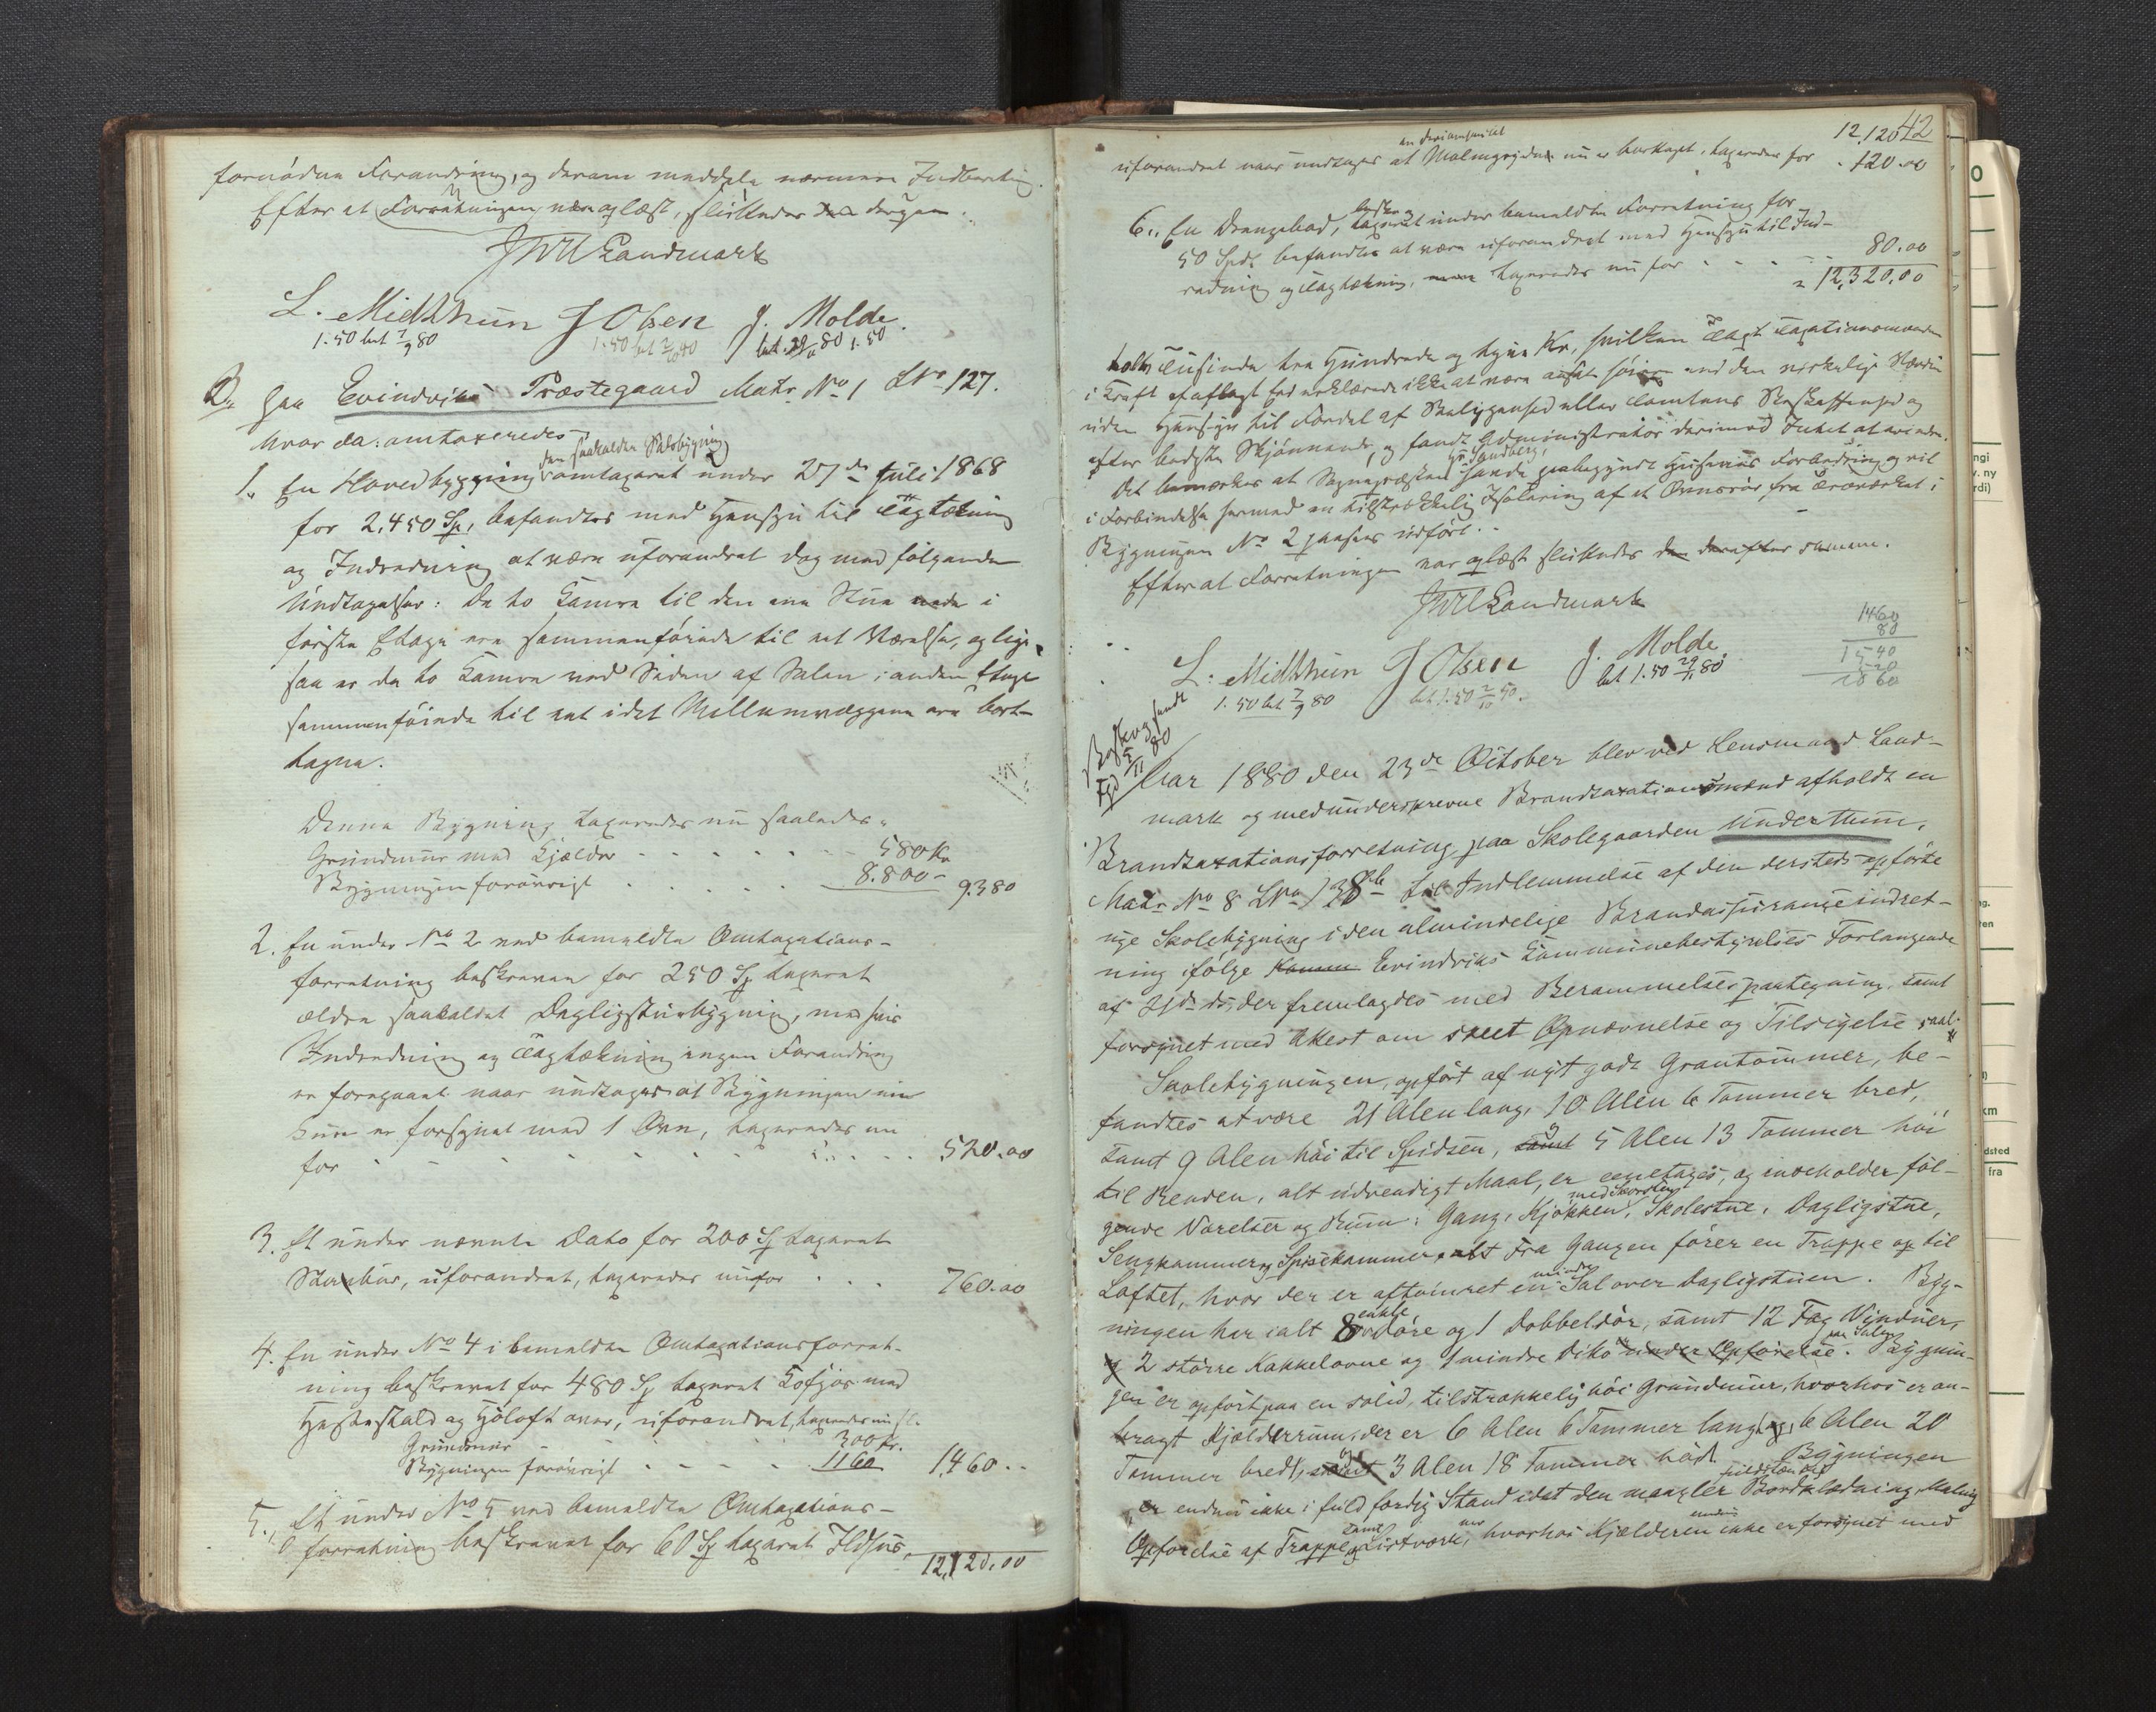 fornødne Forandring, og derom meddele nærmere Indberetning.
Efter at Forretningen var oplæst, sluttedes den dergaar.
JWLandmark
L. Midthun J Olsen J. Molde.
1.50 bet 7/9 80 1.50 bet 2/10 80 bet. 29/11 80 1.50
B, paa Evindviks Præstegaard Matr. No 1 LNo 127.
hvor da: omtaxeredes
den saakaldte Salsbygning
1, En Hovedbygning omtaxeret under 27de Juli 1868
for 2,450 Sp, befandtes med Hensyn til Tagtækning
og Indredning at være uforandret dog med følgende
Undtagelser: De to Kamre til den ene Stue nede i
første Etage ere sammenføiede til eet Værelse, og lige-
saa er de to Kamre ved Siden af Salen i anden Etage
sammenføiede til eet idet Mellemvæggene ere bort-
tagne.
Denne Bygning taxeredes nu saaledes:
Grundmur med Kjælder 580 Kr
Bygningen forøvrigt 8.800 - 9380
2. En under No 2 ved bemeldte Omtaxations-
forretning beskreven for 250 Sp taxeret
ældre saakaldet Dagligstuebygning, med hvis
Indredning og Tagtækning ingen Forandring
er foregaaet naar undtages at Bygningen nu
kun er forsynet med 1 Ovn, taxeredes nu
for 520.00
3. Et under nævnte Dato for 200 Sp taxeret
Stabur, uforandret, taxeredes nu for 760.00
4. En under No 4 i bemeldte Omtaxationsforret-
ning beskrevet for 480 Sp taxeret Kofjøs med
Hestestald og Høloft over, uforandret, taxeredes nu sl.
Grundmur 300 Kr.
Bygningen forøvrigt 1160 1,460..
5., Et under No 5 ved bemeldte Omtaxations-
forretning beskrevet for 60 Sp taxeret Ildhus,
12,120,00
42
12,120
uforandret naar undtages at Malmgryden nu er borttaget, taxeredes for 120.00
6., En Drengebod, taxeret under bemeldte Forretning for
50 Spd befandtes at være uforandret med Hensyn til Ind-
redning og Tagtækning, taxeredes nu for 80.00
12,320,00
tolv Tusinde tre Hundrede og tyve Kr, hvilken Taxt Taxationsmændene
i Kraft af aflagt Ed erklærede ikke at være ansat høiere end den virkelige Værdi
uden Hensyn til Fordel af Beliggenhed eller Tomtens Beskaffenhed og
efter bedste Skjønnende, og fandt Administrator derimod Intet at erindre.
Hr. Sandberg,
Det bemærkes at Sognepræsten havde paabegyndt Husenes Forbedring og vil
i Forbindelse hermed en tilstrækkelig Isolering af et Ovnsrør fra Træværket i
Bygningen No 2 paasees udført.
Efter at Forretningen var oplæst sluttedes den derefter samme.
JWLandmark
L. Midthun J Olsen J. Molde.
1.50 bet 7/9 80 bet 1.50 2/10 80. bet 1.50 29/11 80
1460
80
1540
520
Beskr. udsendt
5/11 80
Aar 1880 den 23de October blev ved Lensmand Land-
mark og medunderskrevne Brandtaxationsmænd afholdt en
Brandtaxationsforretning paa Skolegaarden Underthun,
Matr No 8 LNo 138b til Indlemmelse af den dersteds opførte
nye Skolebygning i den almindelige Brandassuranceindret-
ning ifølge Komm Evindviks Kommunebestyrelses Forlangende
af ds, der fremlagdes med Berammelsespaategning samt
forsynet med Attest om skeet Opnævnelse og Tilsigelse, saal.
Skolebygningen, opført af nyt godt Grantømmer, be-
fandtes at være 21 Alen lang, 10 Alen 6 Tommer bred,
samt 9 Alen høi til Spidsen, samt og 5 Alen 13 Tommer høi
til Renden, alt udvendigt Maal, er eenetages, og indeholder føl-
gende Værelser og Rum: Gang, Kjøkken med Skorsten, Skolestue, Dagligstue,
Sengkammer og Spisekammer, alt Fra Gangen fører en Trappe op til
Loftet, hvor der er aftømret en mindre Sal over Dagligstuen. Byg-
ningen har ialt 8 enkle Døre og 1 Dobbeldør, samt 12 Fag Vinduer,
og 2 større Kakkelovne og 1 mindre dito under Opførelse paa Salen. Bygnin-
gen er opført paa en solid, tilstrækkelig høi Grundmur, hvorhos er an-
bragt Kjælderrum, der er 6 Alen 6 Tommer langt, og 6 Alen 20
Tommer bredt, samt og 3 Alen 18 Tommer høit. Bygningen
er endnu ikke i fuld færdig Stand idet den mangler fuldstændig Bordklædning, Maling
Opførelse af Trappe samt Listværk, hvorhos Kjælderen endnu ikke er forsynet med